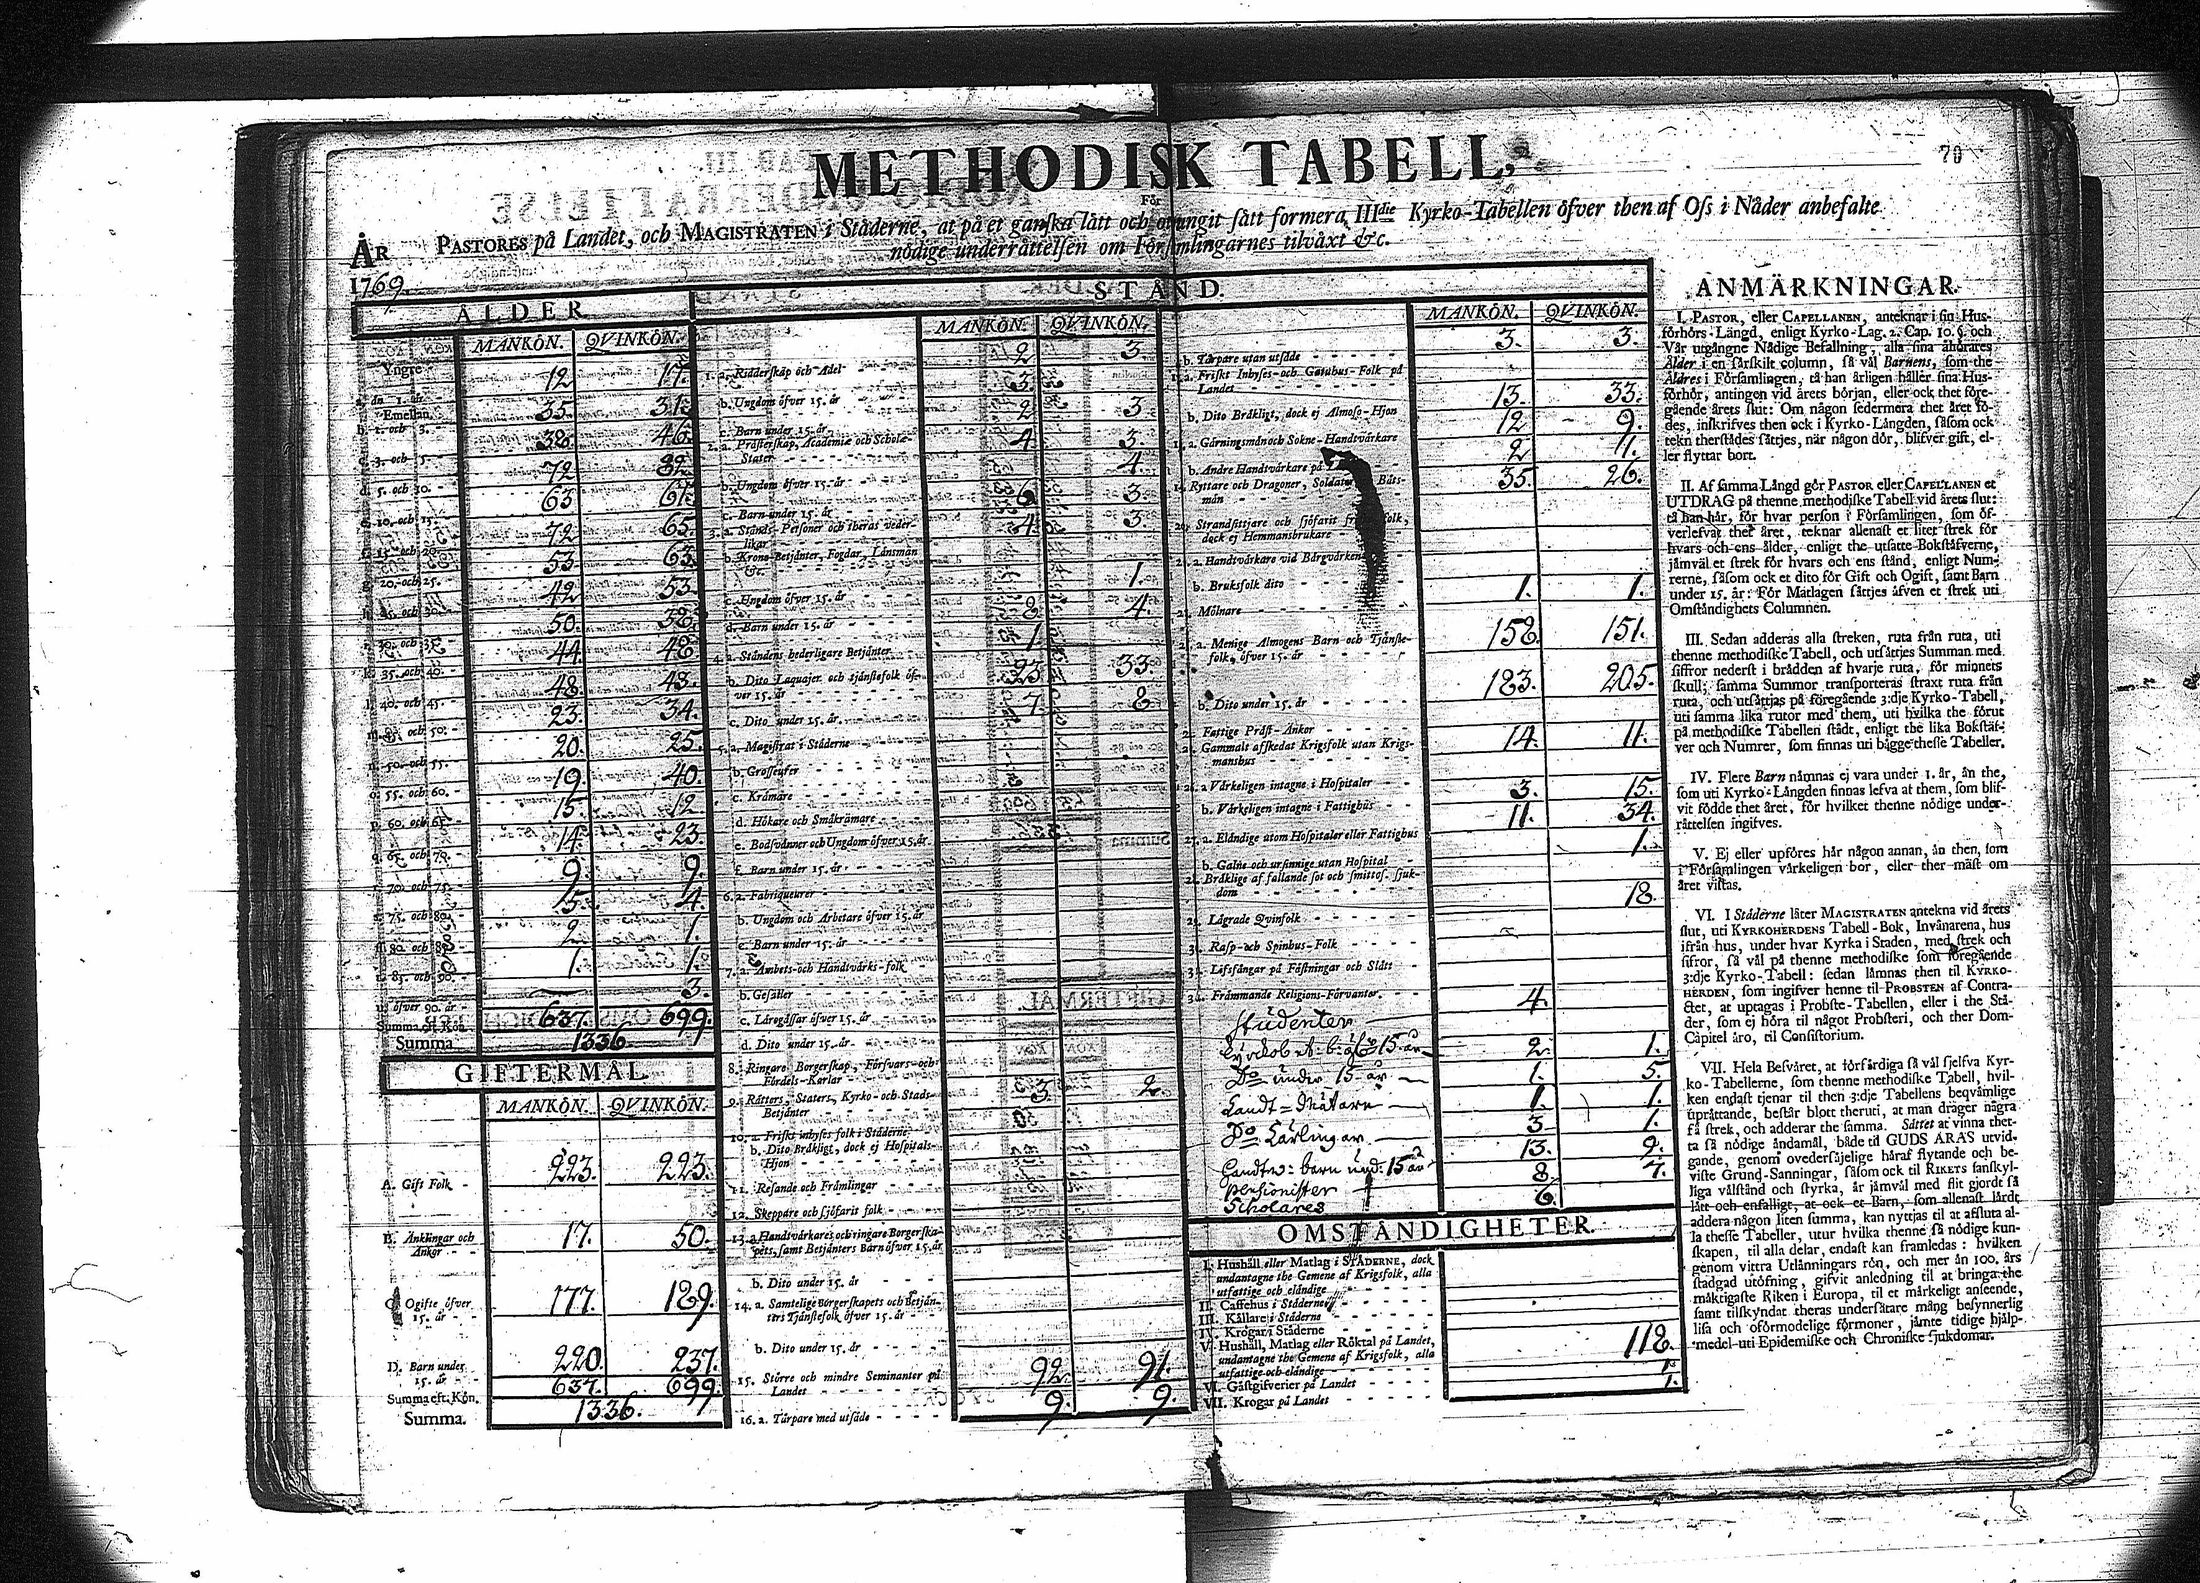 70
METHODISK TABELL,
För
PASTORES på Landet, och MAGISTRATEN i Städerne, at på et ganska lätt och otvungit sätt formera IIIdie Kyrko-Tabellen öfver then af Oss i Nåder anbefalte
nödige underrättelsen om Församlingarnes tilväxt &c.
ÅR
1769.
ÅLDER
MANKÖN. QVINKÖN.
Yngre 12 17.
än 1. år
Emellan 35. 31.
b. 1. och 3. 38. 46.
c. 3. och 5. 72. 82.
d. 5. och 10. 63 61.
e. 10. och 15. 72. 65.
f. 15. och 20. 53. 63.
g. 20. och 25. 42 53
h. 25. och 30. 50. 38.
i. 30. och 35. 44. 48.
k. 35. och 40. 48. 43.
l. 40. och 45. 23. 34.
m. 45. och 50. 20. 25.
n. 50. och 55. 19. 40.
o. 55. och 60. 15. 12
p. 60. och 65. 14. 23.
q. 65. och 70. 9. 9.
r. 70. och 75. 5. 4.
s. 75. och 80. 2. 1.
80. och 85. 1. 1.
t. 85. och 90. 3.
u. öfver 90. år
Summa eft. Kön. 637. 699.
Summa 1336
GIFTERMÅL
MANKÖN. QVINKÖN.
A. Gift Folk - 223. 223.
B. Änklingar och
Änkor - - 17. 50.
C. Ogifte öfver
15. år - - 177. 189.
D. Barn under
15. år - - 220. 237.
Summa eft. Kön. 637. 699.
Summa. 1336.
STÅND.
MANKÖN. QVINKÖN.
2 3
1. a. Ridderskap och Adel
3.
b. Ungdom öfver 15. år -
2. 3
c. Barn under 15. år -
2. a. Prästerskap, Academiæ och Scholæ-
Stater - - 4. 3.
4.
b. Ungdom öfver 15. år -
6. 3.
c. Barn under 15. år
3. a. Stånds-Personer och theras veder-
likar - - 4. 3.
b. Krono-Betjänter, Fogdar, Länsmän
&c. - - 1.
c. Ungdom öfver 15. år - -
8. 4.
d. Barn under 15. år
1.
4. a. Ståndens hederligare Betjänter
23. 33.
b. Dito Laquajer och tjänstefolk öf-
ver 15. år - - 7. 8
c. Dito under 15. år - -
5. a. Magistrat i Städerne
b. Grosseurer
c. Krämare
d. Hökare och Småkrämare
e. Bodsvänner och Ungdom öfver 15. år.
f. Barn under 15. år
6. a. Fabriqueurer
b. Ungdom och Arbetare öfver 15. år
c. Barn under 15. år
7. a. Ämbets-och Handtvärks-folk
b. Gesäller
c. Lärogåssar öfver 15. år
d. Dito under 15. år
8. Ringare Borgerskap, Försvars-och
Fördels-Karlar
9. Rätters, Staters, Kyrko-och Stads-
Betjänter 3. 2.
10. a. Friskt inhyses folk i Städerne
b. Dito Bräkligt, dock ej Hospitals-
Hjon
11. Resande och Främlingar
12. Skeppare och sjöfarit folk
13. a. Handtvärkares och ringare Borgerska-
pets, samt Betjänters Barn öfver 15. år
b. Dito under 15. år
14. a. Samtelige Borgerskapets och Betjän-
ters Tjänstefolk öfver 15. år
b. Dito under 15. år
15. Större och mindre Hemmanter på
Landet 92. 91.
16. a. Tärpare med utsäde 9. 9.
MANKÖN. QVINKÖN.
3. 3.
b. Tärpare utan utsäde
17. a. Friskt Inhyses-och Gatuhus-Folk på
Landet 13. 33.
b. Dito Bräkligt, dock ej Almoso-Hjon
12 9.
a. Gärningsmän och Sokne-Handtvärkare
2 11.
b. Andre Handtvärkare på
35. 26.
Ryttare och Dragoner, Soldater Båts-
män
20. Strandsittjare och sjöfarit folk,
dock ej Hemmansbrukare
a. Handtvärkare vid Bärgvärken
b. Bruksfolk dito
1. 1.
Mölnare
158. 151.
a. Menige Almogens Barn och Tjänste-
folk, öfver 15. år
183. 205.
b. Dito under 15. år
Fattige Präst-Änkor
Gammalt afskedat Krigsfolk utan Krigs-
manshus 14. 11.
a. Värkeligen intagne i Hospitaler
3. 15.
b. Värkeligen intagne i Fattighus
11. 34.
27. a. Eländige utom Hospitaler eller Fattighus
1.
b. Galne och ursinnige utan Hospital
Bräklige af fallande sot och smittos. sjuk-
dom 18.
Lägrade Qvinfolk
Rasp-och Spinhus-Folk
Lifsfångar på Fästningar och Slätt
Främmande Religions-Förvanter.
Studenter 4.
Kyrkob. et. b: öfv 15. år 2 1.
Do under 15 år 1. 5.
Landt-Mätare 1. 1.
Do Lärlingar 3 1.
Landtm: barn und: 15 år 13. 9.
Pensionister 8. 7.
Scholares 6.
OMSTÄNDIGHETER.
I. Hushåll eller Matlag i STÄDERNE, dock
undantagne the Gemene af Krigsfolk, alla
utfattige och eländige
II. Caffehus i Städerne
III. Källare i Städerne
IV. Krogar i Städerne
V. Hushåll, Matlag eller Röktal på Landet,
undantagne the Gemene af Krigsfolk, alla
utfattige och eländige 118.
VI. Gästgifverier på Landet 1.
VII. Krogar på Landet 1.
ANMÄRKNINGAR.
I. PASTOR, eller CAPELLANEN, anteknar i sin Hus-
förhörs-Längd, enligt Kyrko-Lag. 2. Cap. 10. §. och
Vår utgångne Nådige Befallning, alla sina åhörares
Ålder i en särskilt column, så väl Barnens, som the
Äldres i Församlingen, tå han årligen håller sina Hus-
förhör, antingen vid årets början, eller ock thet före-
gående årets slut: Om någon sedermera thet året fö-
des, inskrifves then ock i Kyrko-Längden, såsom ock
tekn therstädes sättjes, när någon dör, blifver gift, el-
ler flyttar bort.
II. Af samma Längd gör PASTOR eller CAPELLANEN et
UTDRAG på thenne methodiske Tabell vid årets slut:
tå han här, för hvar person i Församlingen, som öf-
verlefvat thet året, teknar allenast et litet strek för
hvars och ens ålder, enligt the utsatte Bokstäfverne,
jämväl et strek för hvars och ens stånd, enligt Num-
rerne, såsom ock et dito för Gift och Ogift, samt Barn
under 15. år: För Matlagen sättjes äfven et strek uti
Omständighets Columnen.
III. Sedan adderas alla streken, ruta från ruta, uti
thenne methodiske Tabell, och utsättjes Summan med
siffror nederst i brädden af hvarje ruta, för minnets
skull; samma Summor transporteras straxt ruta från
ruta, och utsättjas på föregående 3:dje Kyrko-Tabell,
uti samma lika rutor med them, uti hvilka the förut
på methodiske Tabellen städt, enligt the lika Bokstäf-
ver och Numrer, som finnas uti bägge thesse Tabeller.
IV. Flere Barn nämnas ej vara under 1. år, än the,
som uti Kyrko-Längden finnas lefva at them, som blif-
vit födde thet året, för hvilket thenne nödige under-
rättelsen ingifves.
V. Ej eller upföres här någon annan, än then, som
i Församlingen värkeligen bor, eller ther mäst om
året vistas.
VI. I Städerne låter MAGISTRATEN antekna vid årets
slut, uti KYRKOHERDENS Tabell-Bok, Invånarena, hus
ifrån hus, under hvar Kyrka i Staden, med strek och
sifror, så väl på thenne methodiske som föregående
3:dje Kyrko-Tabell: sedan lämnas then til KYRKO-
HERDEN, som ingifver henne til PROBSTEN af Contra-
ctet, at uptagas i Probste-Tabellen, eller i the Stä-
der, som ej höra til något Probsteri, och ther Dom-
Capitel äro, til Consistorium.
VII. Hela Besväret, at förfärdiga så väl sjelfva Kyr-
ko-Tabellerne, som thenne methodiske Tabell, hvil-
ken endast tjenar til then 3:dje Tabellens beqvämlige
uprättande, består blott theruti, at man dräger några
få strek, och adderar the samma. Sättet at vinna thet-
ta så nödige ändamål, både til GUDS ÄRAS utvid-
gande, genom ovedersäjelige häraf flytande och be-
viste Grund-Sanningar, såsom ock til RIKETS sanskyl-
liga välstånd och styrka, är jämväl med flit gjordt så
lätt och enfalligt, at ock et Barn, som allenast lärdt
addera någon liten summa, kan nyttjas til at afsluta al-
la thesse Tabeller, utur hvilka thenne så nödige kun-
skapen, til alla delar, endast kan framledas: hvilken
genom vittra Utlänningars rön, och mer än 100. års
stadgad utöfning, gifvit anledning til at bringa the
mäktigaste Riken i Europa, til et märkeligt anseende,
samt tilskyndat theras undersåtare mång besynnerlig
lisa och oförmodelige förmoner, jämte tidige hjälp-
medel uti Epidemiske och Chroniske sjukdomar.